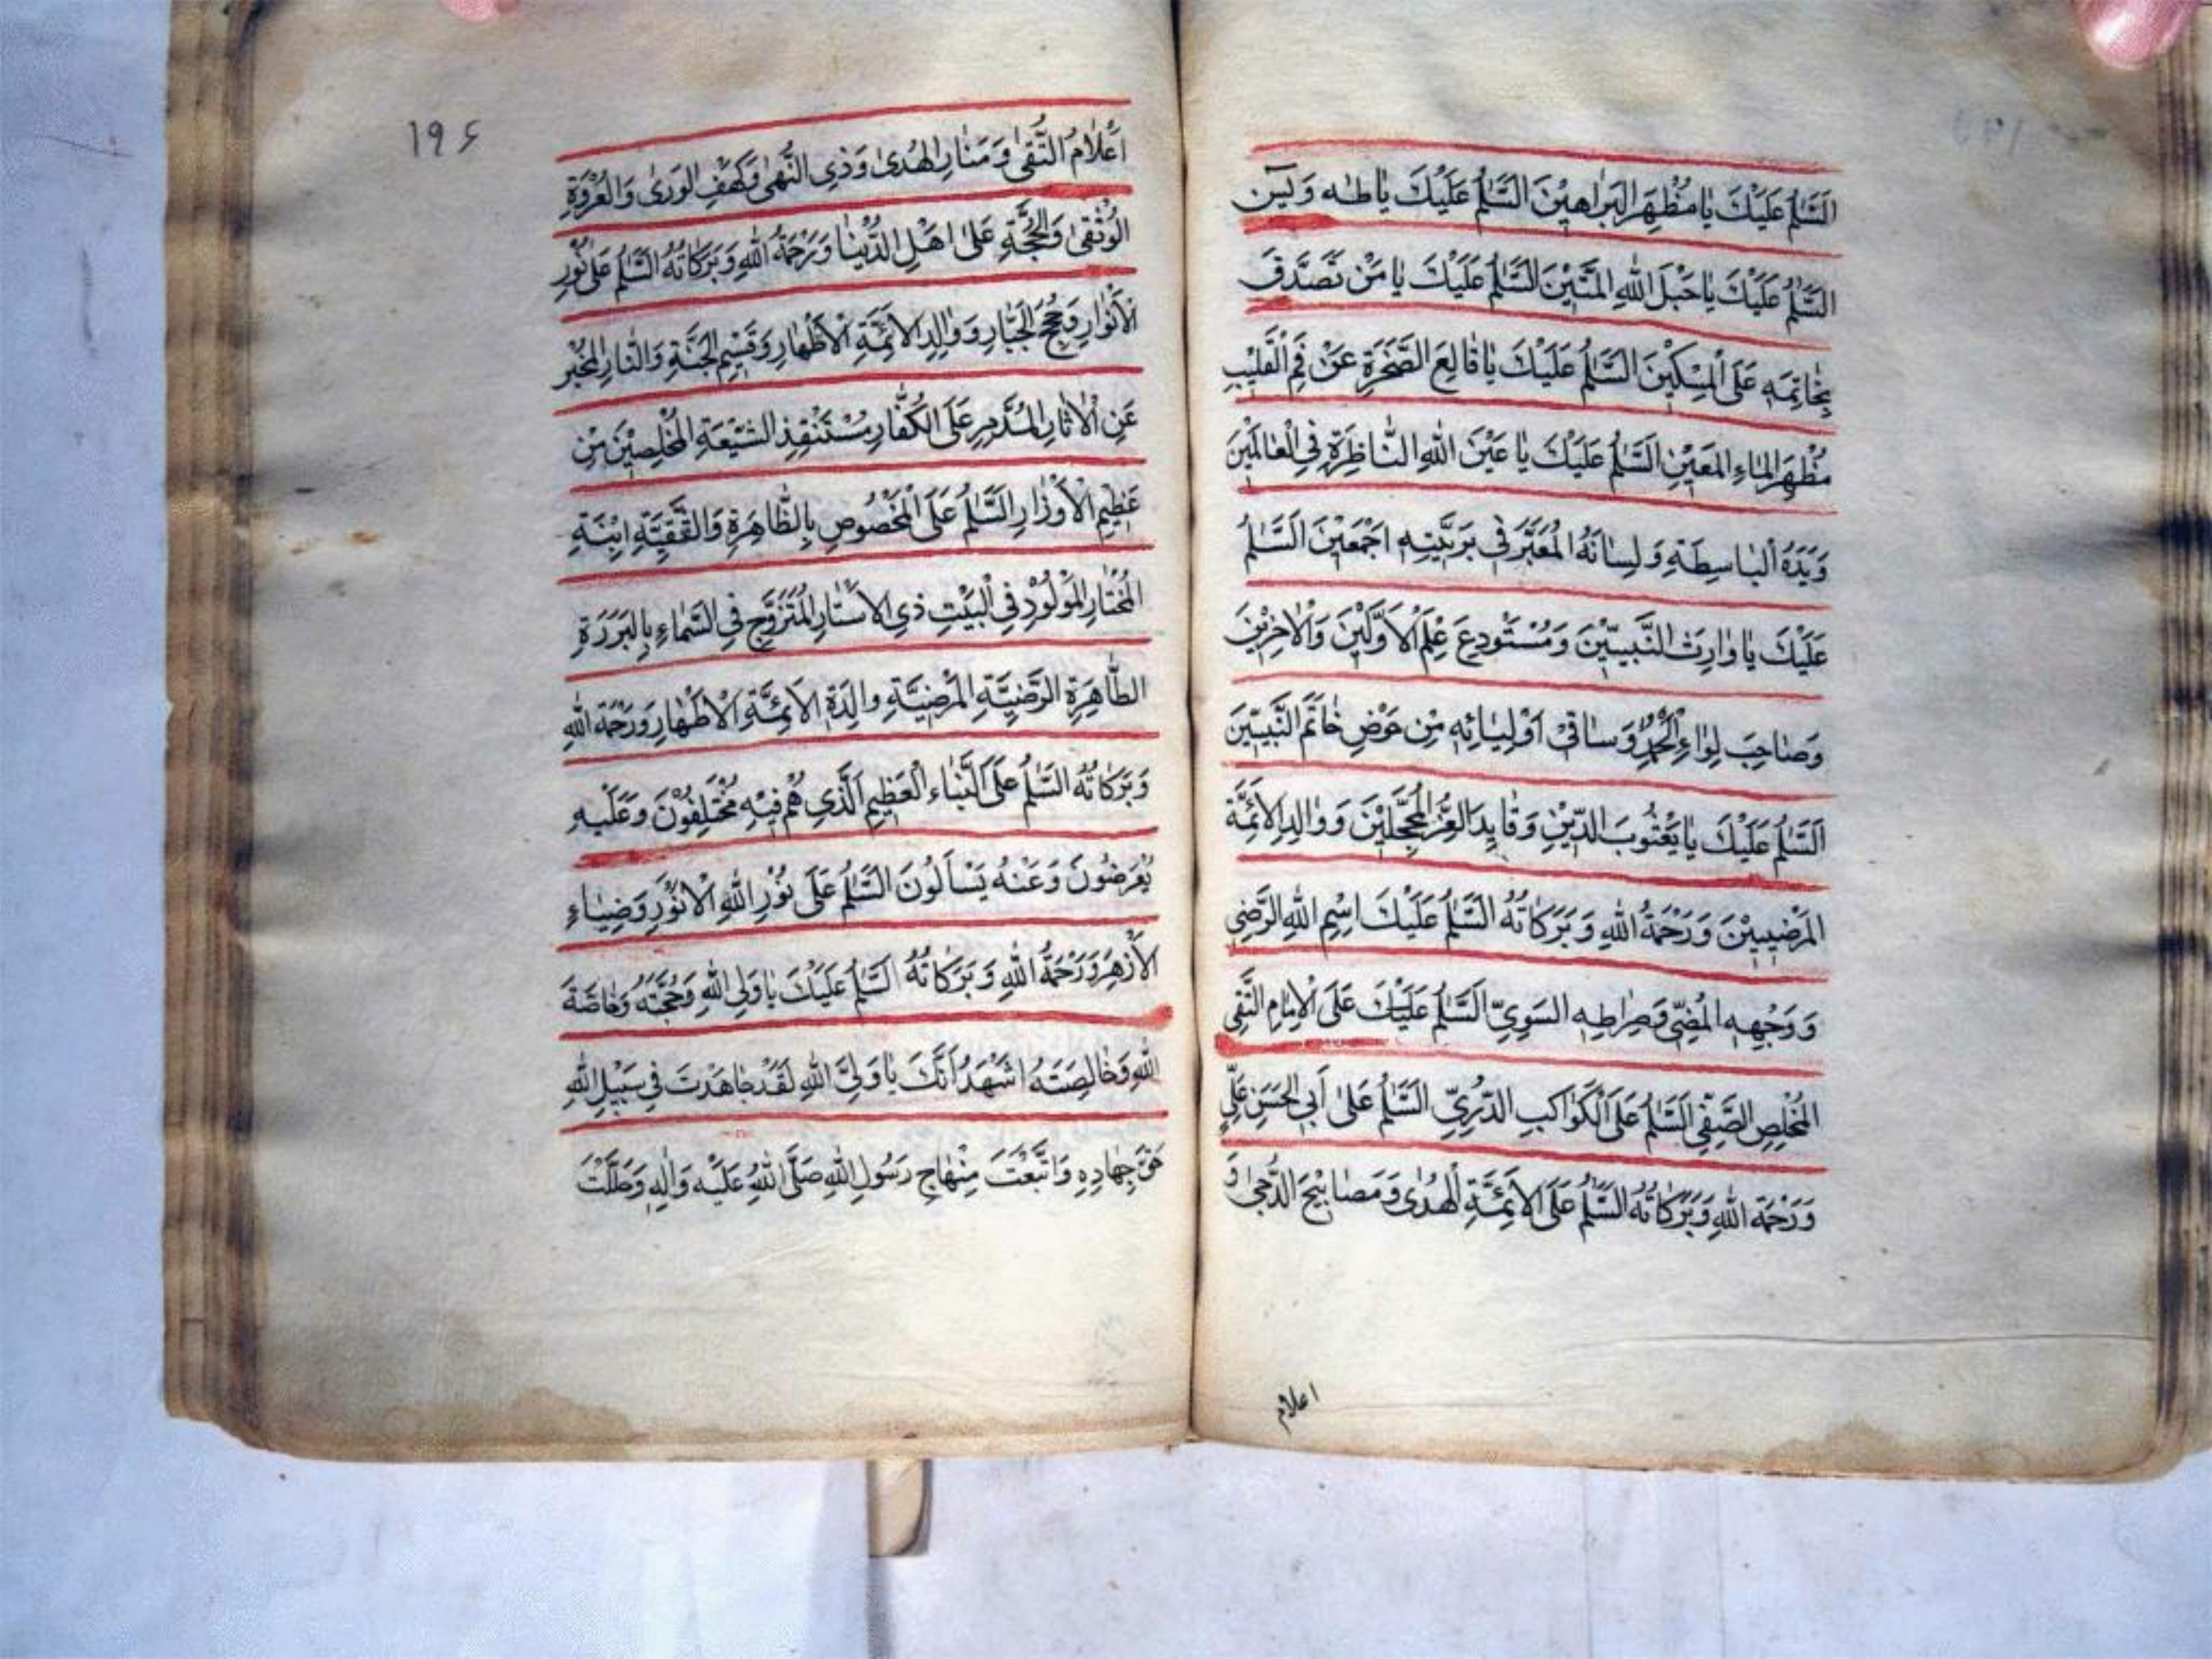 اَلسَّلٰمُ عَلَيْكَ يٰا مُظْهِرَ الْبَرٰاهِيْنَ السَّلٰمُ عَلَيْكَ يٰا طٰه وَ يٰسۤن
السَّلٰمُ عَلَيْكَ يٰا حَبْلَ اللّٰهِ الْمَتِيْنَ السَّلٰمُ عَلَيْكَ يٰا مَنْ تَصَدَّقَ
بِخٰاتِمِهٖ عَلَى الْمِسْكِيْنَ السَّلٰمُ عَلَيْكَ يٰا قٰالِعَ الصَّخْرَةِ عَنْ فَمِ الْقَلِيْبِ
مُظْهِرَ الْمٰاءِ الْمَعِيْنِ السَّلٰمُ عَلَيْكَ يٰا عَيْنَ اللّٰهِ النّٰاظِرَةِ فِي الْعٰالَمِيْنَ
وَ يَدَهُ الْبٰاسِطَةِ وَ لِسٰانَهُ الْمُعَبِّرَ فِي بَرِيَّتِهٖ اَجْمَعِيْنَ السَّلٰمُ
عَلَيْكَ يٰا وٰارِثَ النَّبِيّيْنَ وَ مُسْتَوْدِعَ عِلْمَ الْاَوَّلِيْنَ وَ الْاٰخِرِيْنَ
وَصٰاحِبَ لِوٰاءِ الْحَمْدِ وَ سٰاقِيْ اَوْلِيٰائِهٖ مِنْ حَوْضِ خٰاتَمِ النَّبِيّيْنَ
اَلسَّلٰمُ عَلَيْكَ يٰا يَعْسُوبَ الدّيْنِ وَ قٰايِدَ الْغُرّ الْمُحَجَّلِيْنَ وَ وٰالِدِ الْاَئِمَّةِ
الْمَرْضِيِّيْنَ وَ رَحْمَةُ اللّٰهِ وَ بَرَكٰاتُهُ السَّلٰمُ عَلَيْكَ اِسْمِ اللّٰهِ الرَّضِي
وَ وَجْهِهِ الْمُضِيّ وَ صِرٰاطِهِ السَوِيّ السَّلٰمُ عَلَيْكَ عَلَى الْاِمٰامِ التَّقِي
الْمُخْلِصِ الصَّفِي السَّلٰمُ عَلَى الْكَوٰاكِبِ الدُّرِّيّ السَّلٰمُ عَلٰى اَبِي الْحَسَنِ عَلِيٍّ
وَ رَحْمَةُ اللّٰهِ وَ بَرَكٰاتُهُ السَّلٰمُ عَلَى الْاَئِمَّةِ الْهُدٰى وَ مَصٰابِيْحِ الدُّجٰى وَ
اعلام
۱۹۶
اَعْلٰامُ التُّقٰى وَ مَنٰارِ الْهُدٰى وَ ذِي النُّهٰى وَ كَهْفِ الْوَرٰى وَ الْعُرْوَةِ
الْوُثْقٰى وَ الْحُجَّةِ عَلٰى اَهْلِ الدُّنْيٰا وَ رَحْمَةُ اللّٰهِ وَ بَرَكٰاتُهُ السَّلٰمُ عَلٰى نُوْرِ
الْاَنْوٰارِ وَ حُجَجِ الْجَبّٰارِ وَ وٰالِدِ الْاَئِمَّةِ الْاَطْهٰارِ وَ قَسِيْمِ الْجَنَّةِ وَ النّٰارِ الْمُخْبِرِ
عَنِ الْاٰثٰارِ الْمُدَّمِرِ عَلَى الْكُفّٰارِ مُسْتَنْقِذِ الشّيْعَةِ الْمُخْلِصِيْنَ مِنْ
عَظِيْمِ الْاَوْزٰارِ السَّلٰمُ عَلَى الْمَخْصُوصِ بِالطّٰاهِرَةِ وَ التَّقِيَّةِ ابْنَةِ
الْمُخْتٰارِ الْمَوْلُوْدِ فِي الْبَيْتِ ذِي الْاَسْتٰارِ الْمُتَزَوِّجِ فِي السَّمٰاءِ بِالْبَرَرَةِ
الطّٰاهِرَةِ الرَّضِيَّةِ الْمَرْضِيَّةِ وٰالِدَةِ الْاَئِمَّةِ الْاَطْهٰارِ وَ رَحْمَةُ اللّٰهِ
وَ بَرَكٰاتُهُ السَّلٰمُ عَلَى النَّبٰاءِ الْعَظِيْمِ الَّذِي هُمْ فِيْهِ مُخْتَلِفُوْنَ وَ عَلَيْهِ
يُعْرَضُوْنَ وَ عَنْهُ يَسْاَلُوْنَ السَّلٰمُ عَلٰى نُوْرِ اللّٰهِ الْاَنْوَرِ وَ ضِيٰاءِ
الْاَزْهَرِ وَ رَحْمَةُ اللّٰهِ وَ بَرَكٰاتُهُ السَّلٰمُ عَلَيْكَ يٰا وَلِيَ اللّٰهِ وَ حُجَّتَهُ وَ خٰاصَّةَ
اللّٰهِ وَ خٰالِصَتَهُ اَشْهَدُ اَنَّكَ يٰا وَلِيَّ اللّٰهِ لَقَدْ جٰاهَدْتَ فِي سَبِيْلِ اللّٰهِ
حَقَّ جِهٰادِهِ وَ اتَّبَعْتَ مِنْهٰاجِ رَسُولِ اللّٰهِ صَلَّى اللّٰهُ عَلَيْهِ وَ اٰلِهِ وَ حَلَّلْتَ